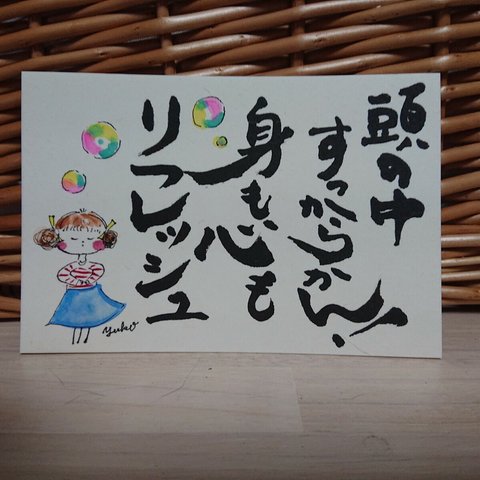 頭の中
すっからかん!
身も心も
リフレッシュ
yuko